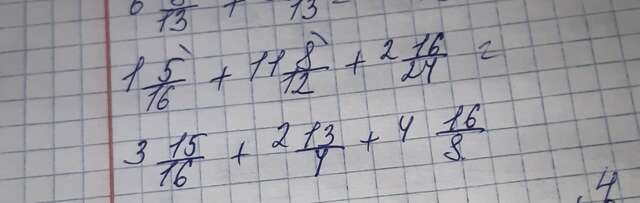 6 8/13 + 13 -
1 5/16 + 11 8/12 + 2 16/24 =
3 15/16 + 2 13/4 + 4 16/8
4